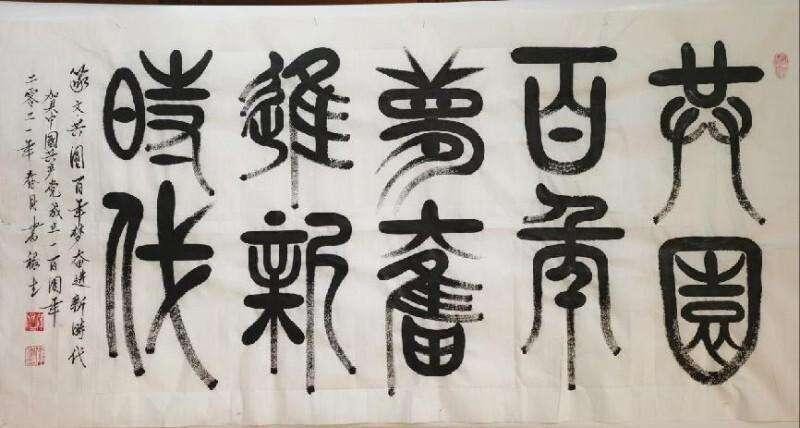 共園
百年
夢奮
進新
時代
篆文共圆百年梦奋进新时代
贺中國共产党成立一百周年
二零二一年春月